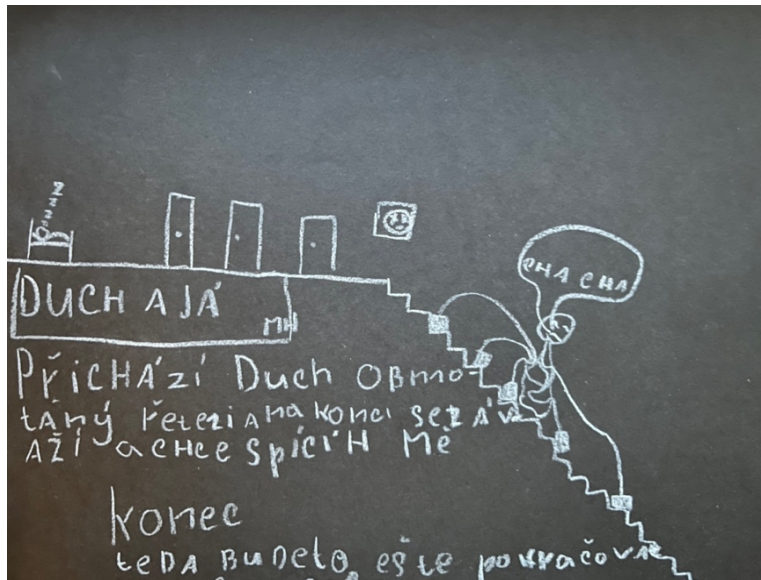 zzzzz
CHA CHA
DUCH A JÁ
MH
PŘiCHÁZí Duch OBmo-
tANý řetezi A na konci se ZÁV
AŽí a CHCe SpíCíH MĚ
konec
teDA BuDeto eště pokračovat